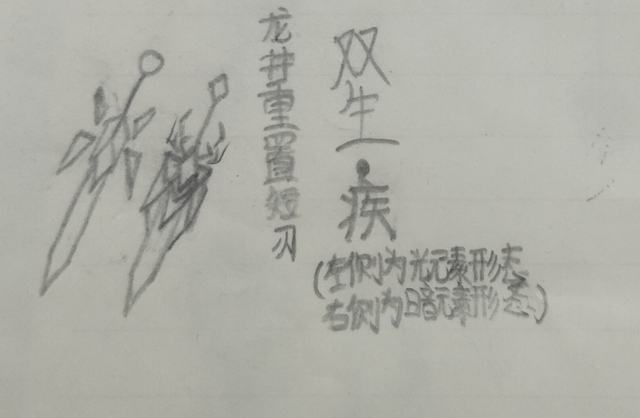 龙井重置短刃
双生·疾
(左侧为光元素形态
右侧为暗元素形态)